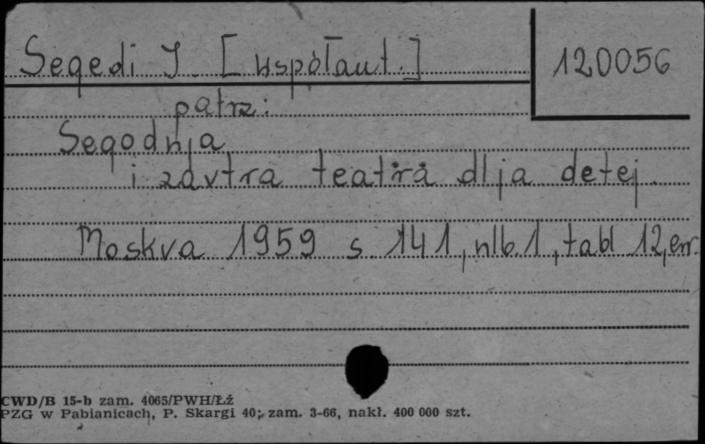 Segedi I. [współaut.]
120056
patrz:
Segodnja
i zavtra teatra dlja detej.
Moskva 1959 s. 141, nlb. 1, tabl. 12, err.
CWD/B 15-b zam. 4065/PWH/Łż
PZG w Pabianicach, P. Skargi 40; zam. 3-66, nakł. 400 000 szt.